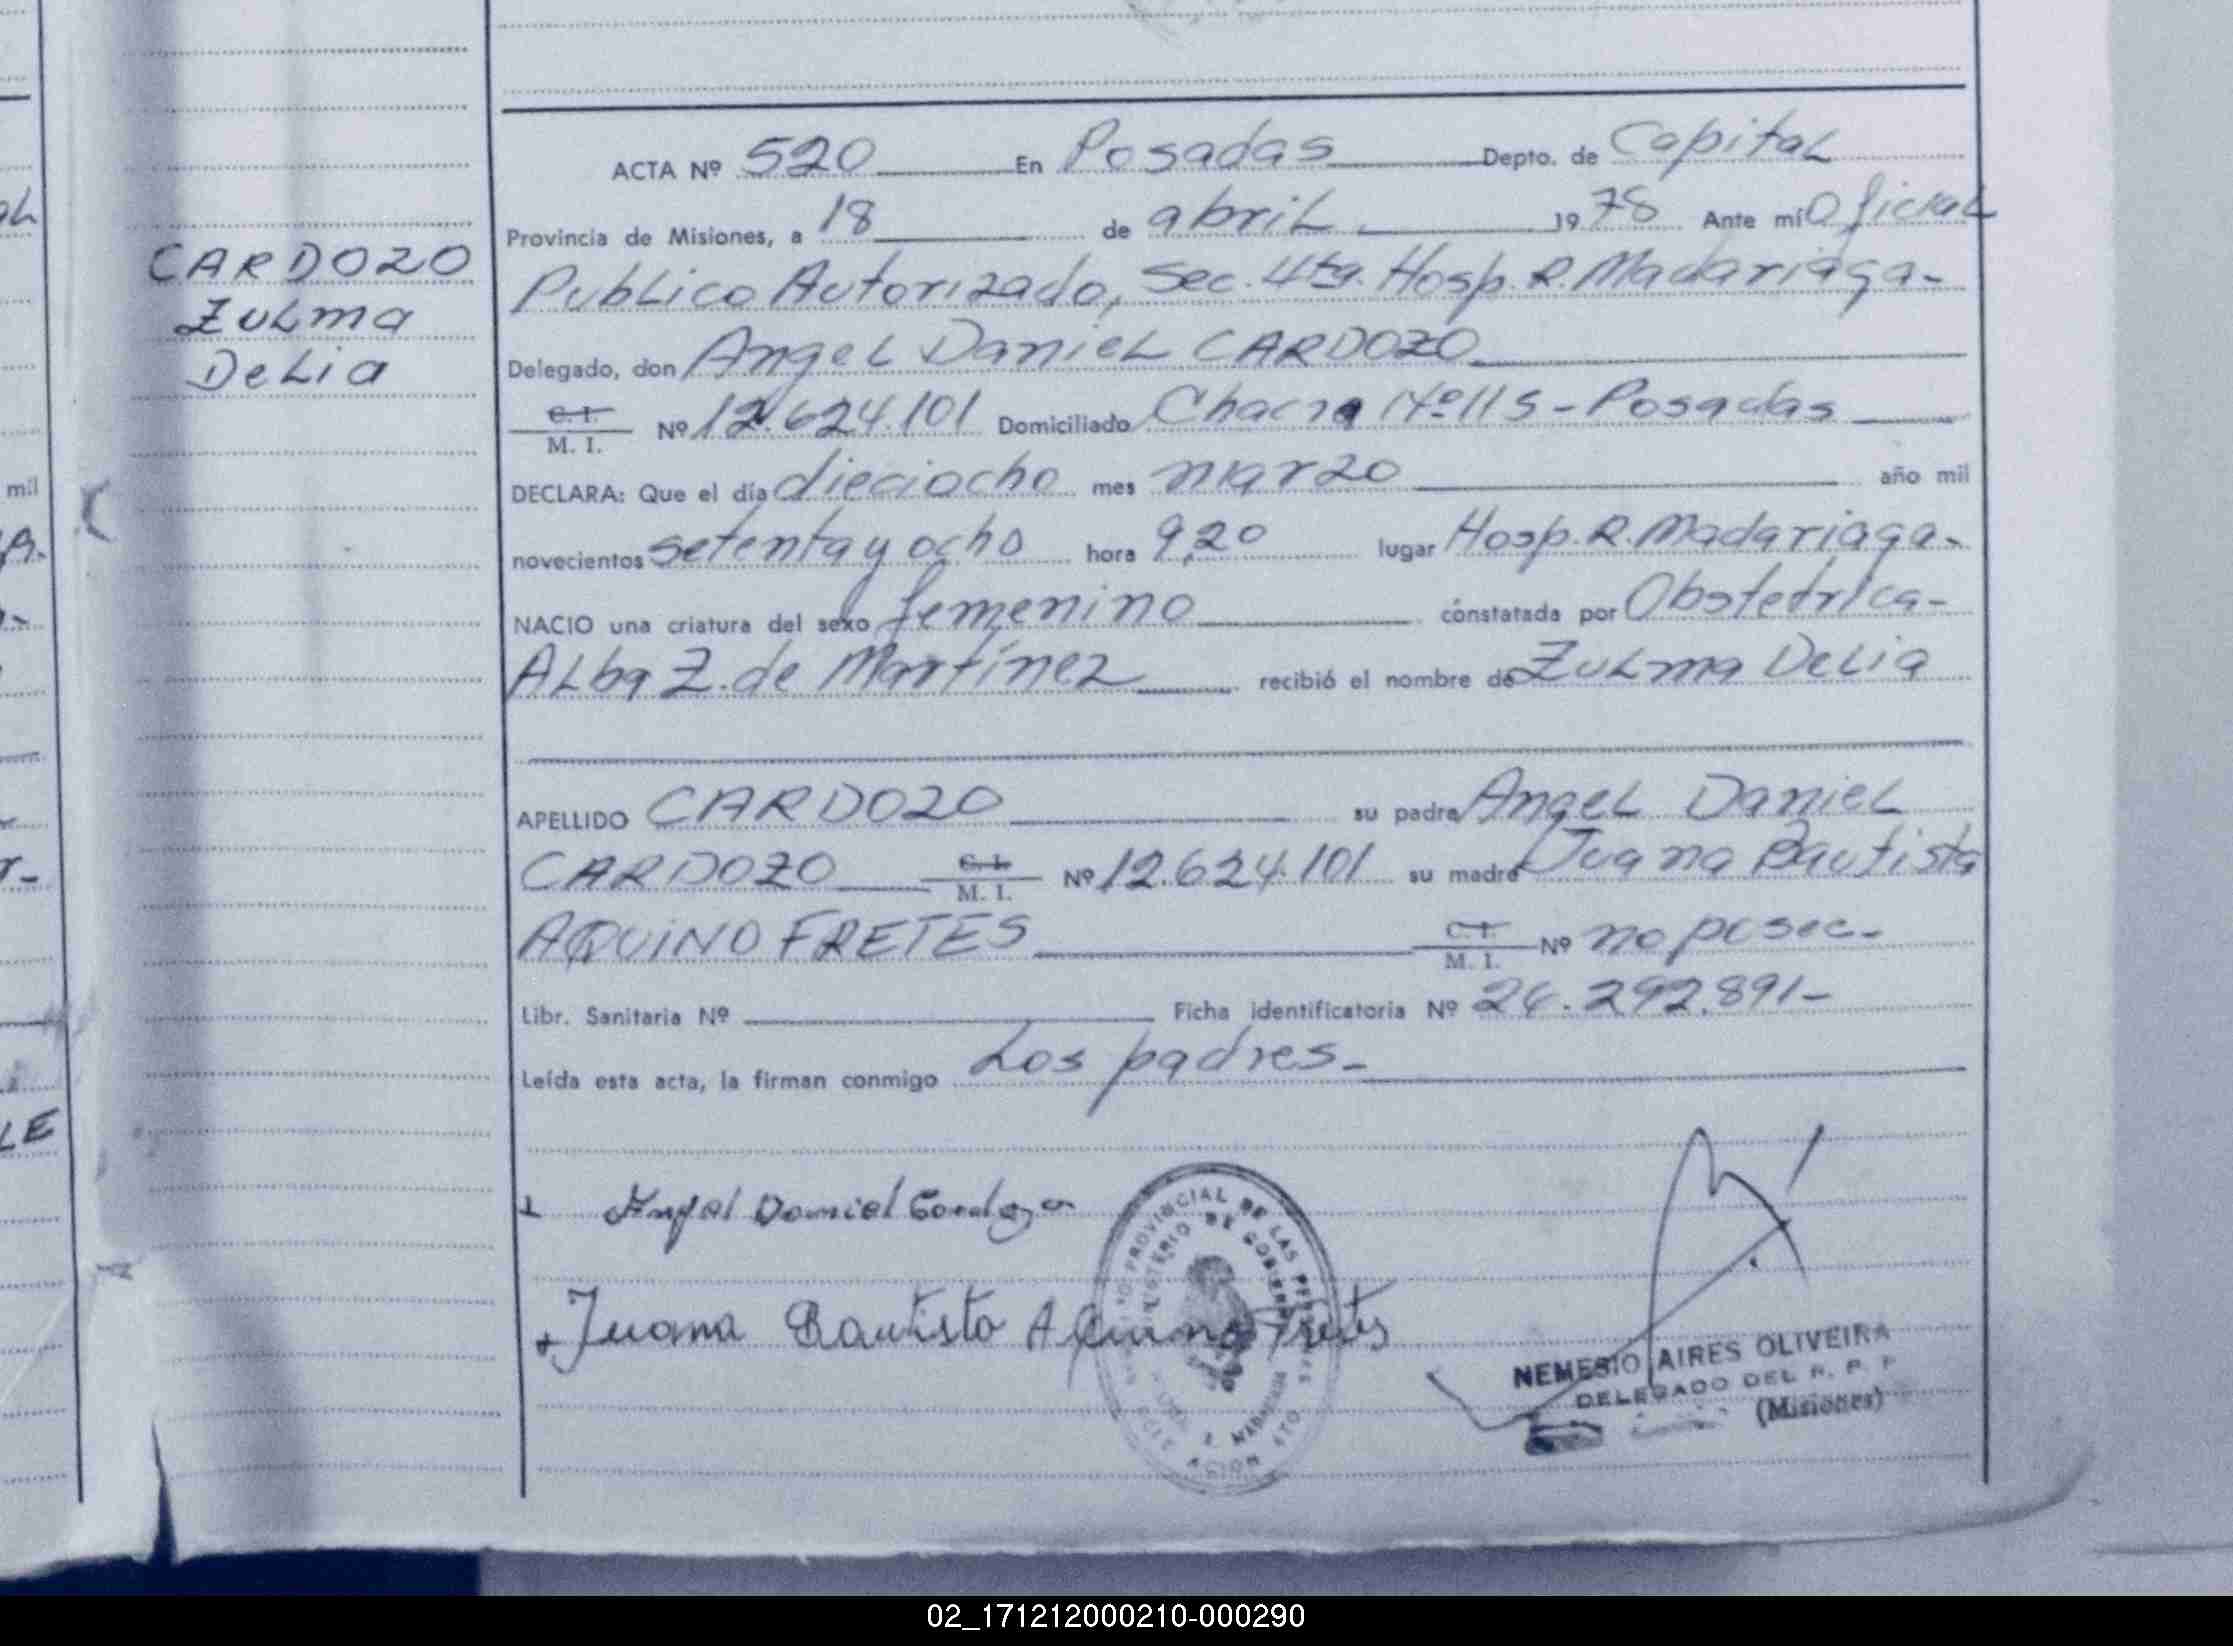 CARDOZO
Zulma
Delia
ACTA Nº 520 En Posadas Depto. de Capital
Provincia de Misiones, a 18 de abril 1978 Ante mí Oficial
Publico Autorizado, Sec. 4ta. Hosp. R. Madariaga-
Delegado, don Angel Daniel CARDOZO
C. I.
M. I. Nº 12.624.101 Domiciliado Chacra Nº 115 - Posadas
DECLARA: Que el día dieciocho mes marzo año mil
novecientos setenta y ocho hora 9,20 lugar Hosp. R. Madariaga-
NACIO una criatura del sexo femenino constatada por Obstetrica-
Alba Z. de Martínez recibió el nombre de Zulma Delia
APELLIDO CARDOZO su padre Angel Daniel
CARDOZO C. I. M. I. Nº 12.624.101 su madre Juana Bautista
AQUINO FRETES C. I. M. I. Nº no posee-
Libr. Sanitaria Nº Ficha identificatoria Nº 26.292.891-
Leída esta acta, la firman conmigo Los padres-
Angel Daniel Cardozo
Juana Bautista Aquino Fretes
PROVINCIAL DE LAS PERSONAS
MINISTERIO DE GOBIERNO
NEMESIO AIRES OLIVEIRA
DELEGADO DEL R. P. P
(Misiones)
mil
LE
02_171212000210-000290